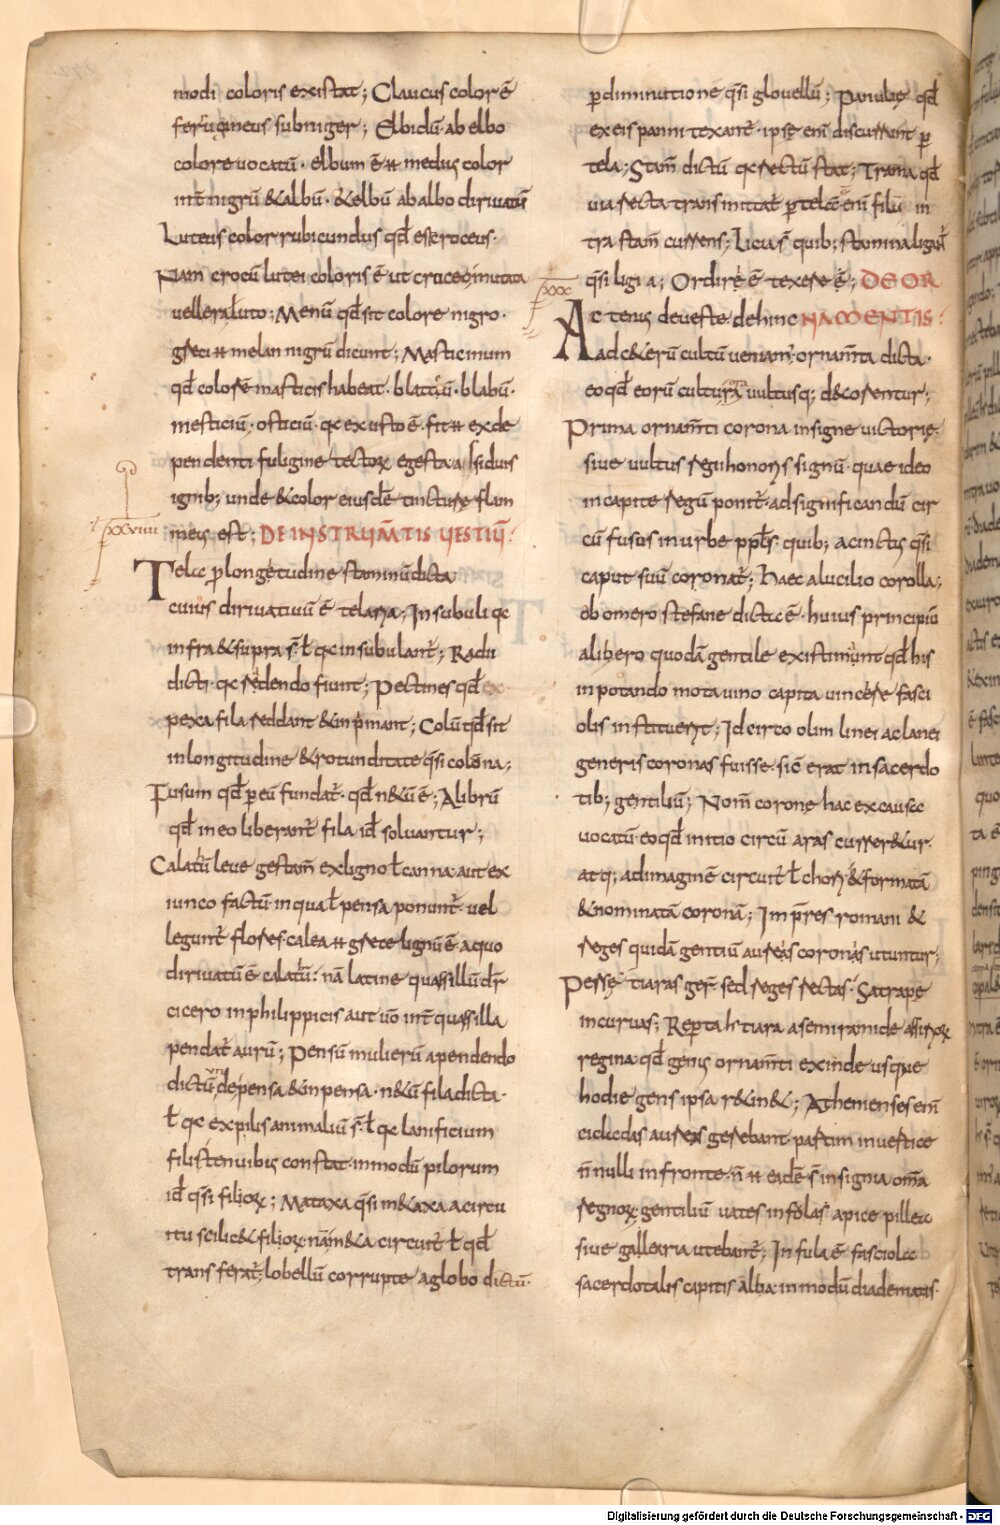 modi coloris existat; Claucus color ē
ferrugineus subniger; Elbidū ab elbo
colore uocatū. elbum ē ħ medius color
int̄ nigrū &albū. &elbū ab albo diriuatū
Luteus color rubicundus qd̄ est croceus.
Nam crocū lutei coloris ē ut croceo mutata
uellera luto; Menū qd̄ sit colore nigro.
greci ħ melan nigrū dicunt; Masticinum
qd̄ colorē masticis habeat. blabū.
mesticiū. osticiū. qđ ex usto ē. fit ħ ex de
pendenti fuligine tector egesta assiduis
ignib; unde &color eiusdē tincture flam
meus est; DE INSTRUM̄TIS UESTIŪ:
xxviiii
Telae p longetudine staminū dicta
cuius diriuatiuū ē telaria; Insubuli qđ
infra &supra s̄. ł qđ insubulant̄; Radii
dicti. qđ redendo fiunt; Pectines qd̄
pexa fila reddant &inp̄mant; Colū qd̄ sit
in longitudine &rotunditate q̄si colōna;
Fusum qd̄ p eū fundat̄. qd̄ n&ū ē; Alibrū
qd̄ in eo liberant̄ fila id̄ soluantur;
Calatū leue gestam̄ ex ligno ł canna aut ex
iunco factū in qua ł pensa ponunt̄. uel
legunt̄ flores calea ħ grece lignū ē a quo
diriuatū ē calatū: nā latine quassillū dr̄
cicero in philippicis aut uō int̄ quassilla
pendat̄ aurū; Pensū mulierū a pendendo
dictū. de pensa &inpensa. n&ū fila dicta.
ł qđ ex pilis animaliū s̄. ł qđ lanificium
filis tenuibus constat in modū pilorum
id̄ q̄si filior; Mataxa q̄si m&axa a circu
itu scilic& filior. nām &a circuit̄ ł qd̄
transferat̄. lobellū corrupte a globo dictū.
p diminutione q̄si glouellū; Panulie qd̄
ex eis panni texant̄. ipse eni discurrunt p
tela; Stam̄ dictū qđ rectū stat; Trama qd̄
uia recta trans mittat̄ p telā. ē eni filū in
tra stam̄ currens; Licia s̄ quib; stamina ligant̄
q̄si ligia; Ordire ē texere ē; DE OR
xxx
Actenus de ueste dehinc NAMENTIS:
ad c&erū cultū ueniam̄. ornam̄ta dicta.
eo qd̄ eorū cultura ora uultusq; d&orentur;
Prima ornam̄ti corona insigne uictorie.
siue uultus regii honoris signū. quae ideo
in capite regū ponit̄. ad significandū cir
cū fusos in urbe pp̄ls. quib; accinctus q̄si
caput suū coronat̄; Haec a lucilio corolla;
ob omero stefane dictae ē. huius principiū
a libero quodā gentile existimunt qd̄ his
in potando mota uino capita uincere fasci
olis instituerit; Idcirco olim linei ac lanei
generis coronas fuisse. sic erat in sacerdo
tib; gentiliū; Nom̄ corone hac ex causae
uocatū. eo qd̄ initio circū aras curr&ur.
atq; ad imaginē circuit̄ ł chori &formatā
&nominatā coronā; Imp̄res romani &
reges quidā gentiū aureas coronas utuntur;
Perse tiaras ger̄. sed reges rectas. Satrape
incuruas; Repta h tiara a semiramide assirior
regina qd̄ genus ornam̄ti exinde usque
hodie gens ipsa r&in&; Athenienses eni
cicledas aureas gerebant. partim in uertice
n̄ nulli in fronte. n̄ ħ eadē s̄ insignia om̄a
regnor. gentiliū uates infolas apice pilleū
siue gallearia utebant̄; Infula ē fasciolae
sacerdotalis capitis alba in modū diadematis.
Digitalisierung gefördert durch die Deutsche Forschungsgemeinschaft - DFG